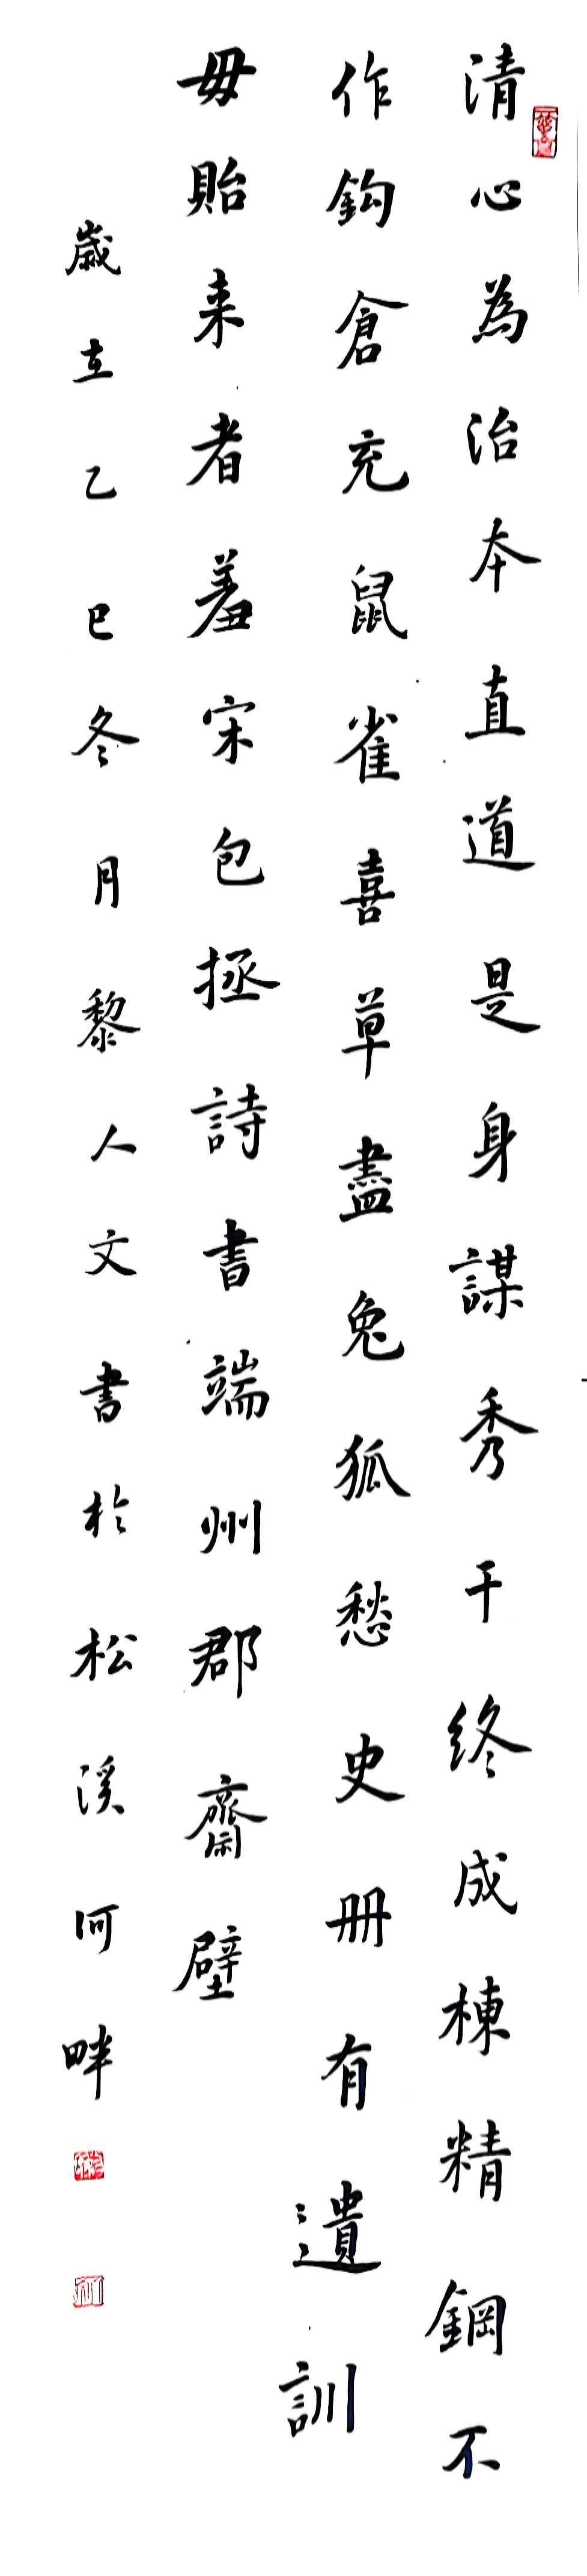 清心為治本直道是身謀秀干终成棟精鋼不
作鈎倉充鼠雀喜草盡兔狐愁史冊有遺訓
毋貽来者羞宋包拯詩書端州郡齋壁
歲在乙巳冬月黎人文書於松溪河畔